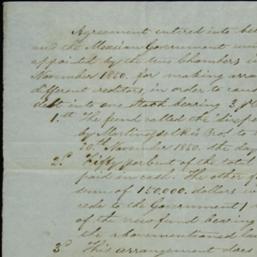 Agreement entered into be
and the Mexican Government
appointed by the two Chambers
November 1850. for making arra
different creditors, in order to cause
debt into one stock bearing 3 p
1st The fund called the
by Martinez de los Rios to
30th November 1850. the day
2d Fifty per cent of the total
paid in cash. The other
sum of 150,000. dollars
cede to the Government
of the new fund bearing
the abovementioned
3d This arrangement does